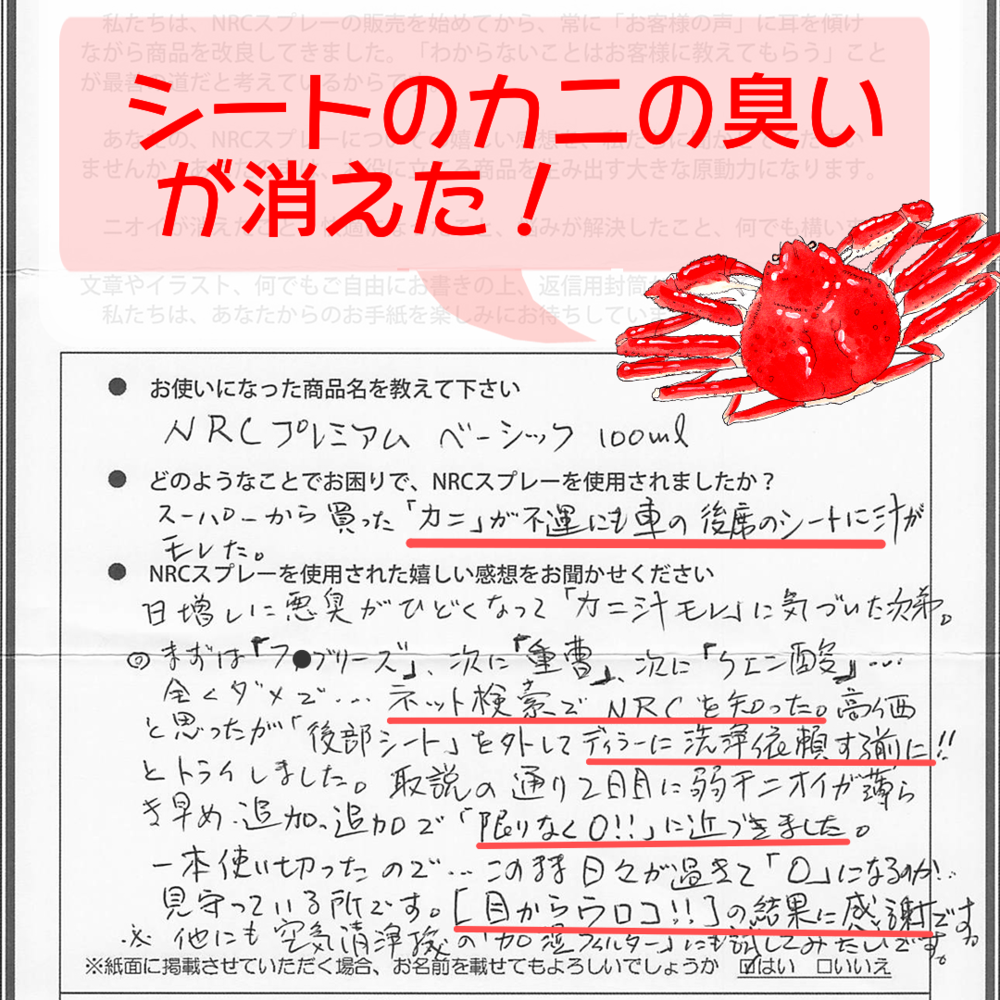 私たちは、NRCスプレーの販売を始めてから、常に「お客様の声」に耳を傾け
ながら商品を改良してきました。「わからないことはお客様に教えてもらう」こと
が最善の道だと考えているからで
シートのカニの臭い
が消えた!
あなたの、NRCスプレーについての嬉しい感想を、私たちに聞かせてください
ませんか?あなたの声は、お役に立てる商品を生み出す大きな原動力になります。
ニオイが消えたこと、快適になったこと、悩みが解決したこと、何でも構いま
文章やイラスト、何でもご自由にお書きの上、返信用封筒
私たちは、あなたからのお手紙を楽しみにお待ちしていま
● お使いになった商品名を教えて下さい
NRCプレミアム ベーシック 100ml
● どのようなことでお困りで、NRCスプレーを使用されましたか?
スーパーから買った「カニ」が不運にも車の後席のシートに汁が
モレた。
● NRCスプレーを使用された嬉しい感想をお聞かせください
日増しに悪臭がひどくなって「カニ汁モレ」に気づいた次第。
◎まずは「フ●ブリーズ」、次に「重曹」、次に「クエン酸」…
全くダメで… ネット検索でNRCを知った。高価
と思ったが「後部シート」を外してディラーに洗浄依頼する前に!!
とトライしました。取説の通り2日目に弱干ニオイが薄ら
き早め、追加、追加で「限りなく0!!」に近づきました。
一本使い切ったので… このまま日々が過ぎて「0」になるのか!..
見守っている所です。[目からウロコ!!]の結果に感謝です。
※他にも空気清浄機の「加湿フィルター」にも試してみたいです。
※紙面に掲載させていただく場合、お名前を載せてもよろしいでしょうか ☑はい □いいえ